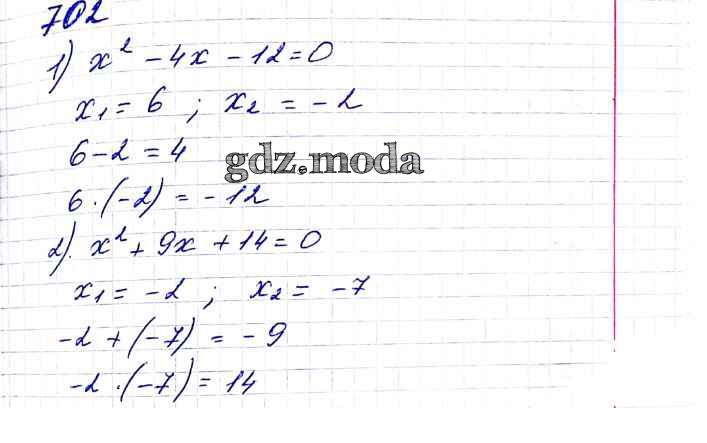 702
1) x² - 4x - 12 = 0
x₁ = 6 ; x₂ = -2
6 - 2 = 4
gdz.moda
6 · (-2) = -12
2). x² + 9x + 14 = 0
x₁ = -2 ; x₂ = -7
-2 + (-7) = -9
-2 · (-7) = 14